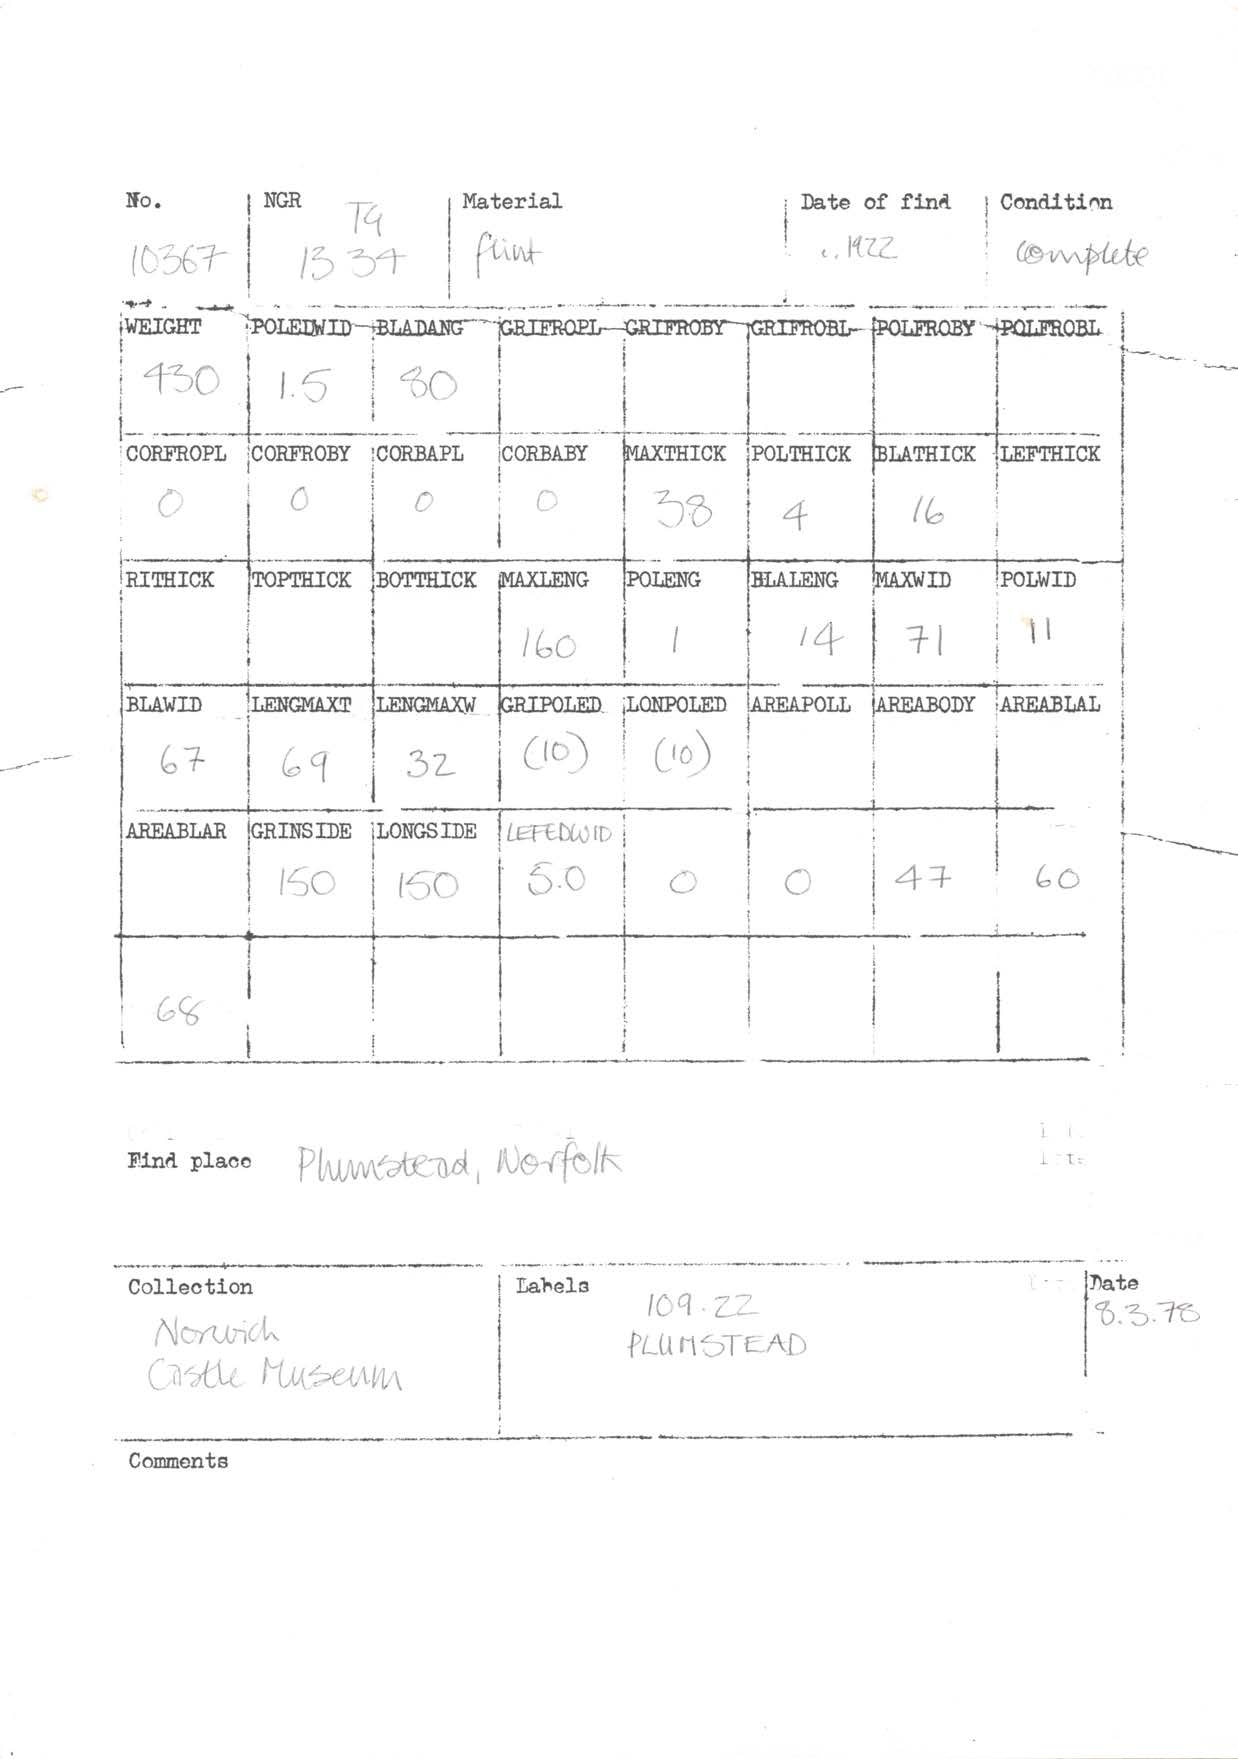 No. NGR Material Date of find Condition
TG
10367 13 34 flint c.1922 complete
WEIGHT POLEDWID BLADANG GRIFROPL GRIFROBY GRIFROBL POLFROBY POLFROBL
430 1.5 80
CORFROPL CORFROBY CORBAPL CORBABY MAXTHICK POLTHICK BLATHICK LEFTHICK
0 0 0 0 38 4 16
RITHICK TOPTHICK BOTTHICK MAXLENG POLENG BLALENG MAXWID POLWID
160 1 14 71 11
BLAWID LENGMAXT LENGMAXW GRIPOLED LONPOLED AREAPOLL AREABODY AREABLAL
67 69 32 (10) (10)
AREABLAR GRINSIDE LONGSIDE LEFEDWID
150 150 5.0 0 0 47 60
68
Find place Plumstead, Norfolk
Collection Labels Date
109.22 8.3.78
Norwich PLUMSTEAD
Castle Museum
Comments